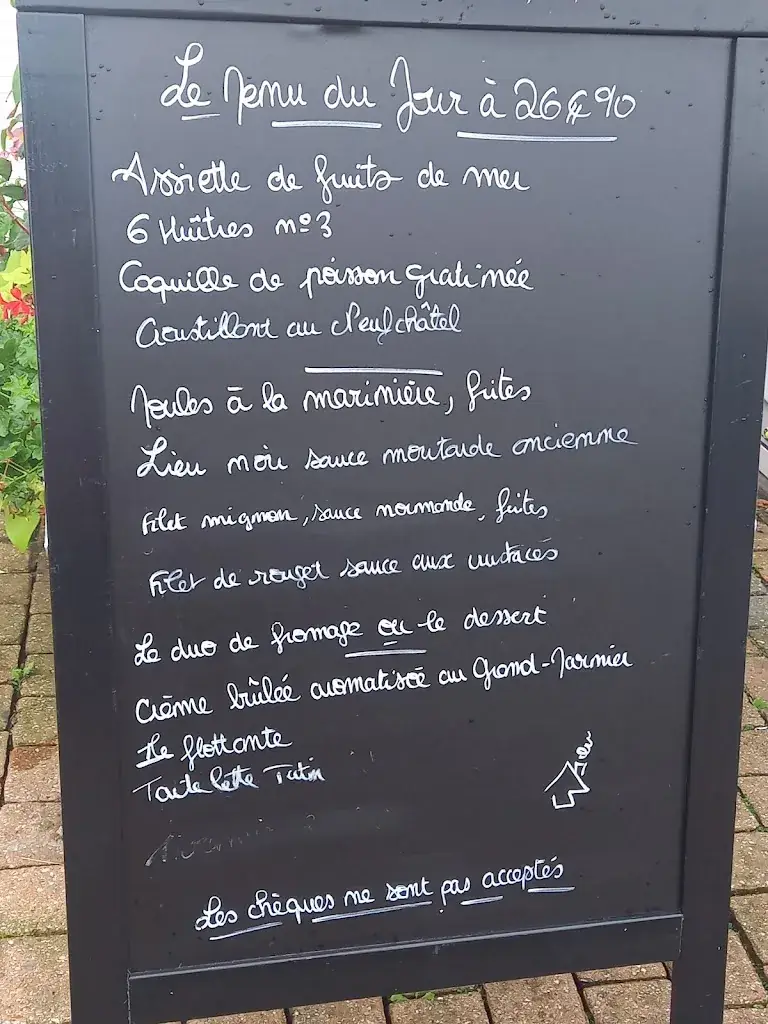 Le Menu du Jour à 26€90
Assiette de fruits de mer
6 Huîtres n°3
Coquille de poisson gratinée
Croustillant au Neufchâtel
Moules à la marinière, frites
Lieu noir sauce moutarde ancienne
Filet mignon, sauce normande, frites
Filet de rouget sauce aux crustacés
Le duo de fromage ou le dessert
Crème brûlée aromatisée au Grand-Marnier
Ile flottante
Tartelette Tatin
Les chèques ne sont pas acceptés